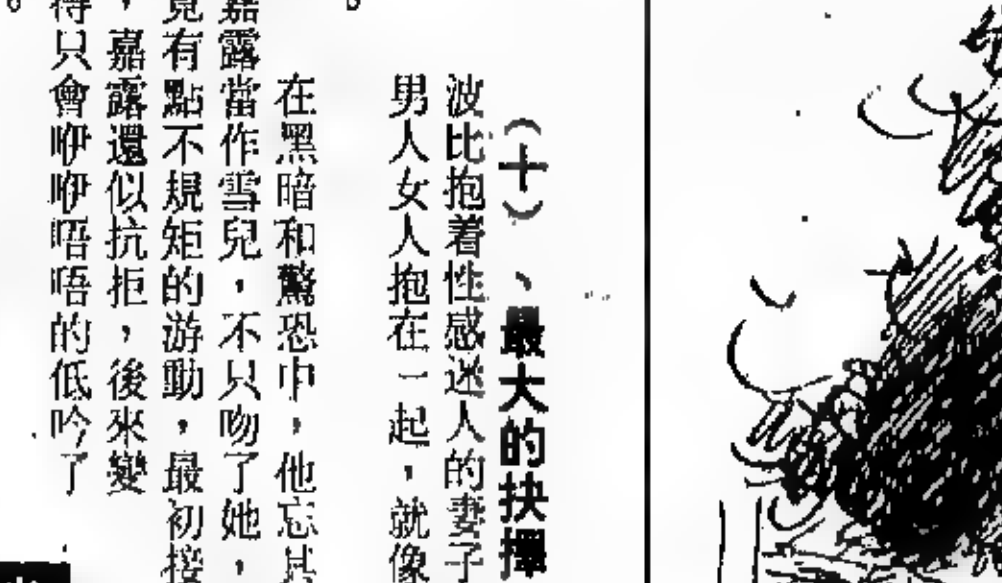 （十）、最大的抉擇
波比抱着性感迷人的妻子
男人女人抱在一起，就像
在黑暗和驚恐中，他忘其
嘉露當作雪兒，不只吻了她，
竟有點不規矩的游動，最初接
，嘉露還似抗拒，後來變
得只會咿咿唔唔的低吟了
。